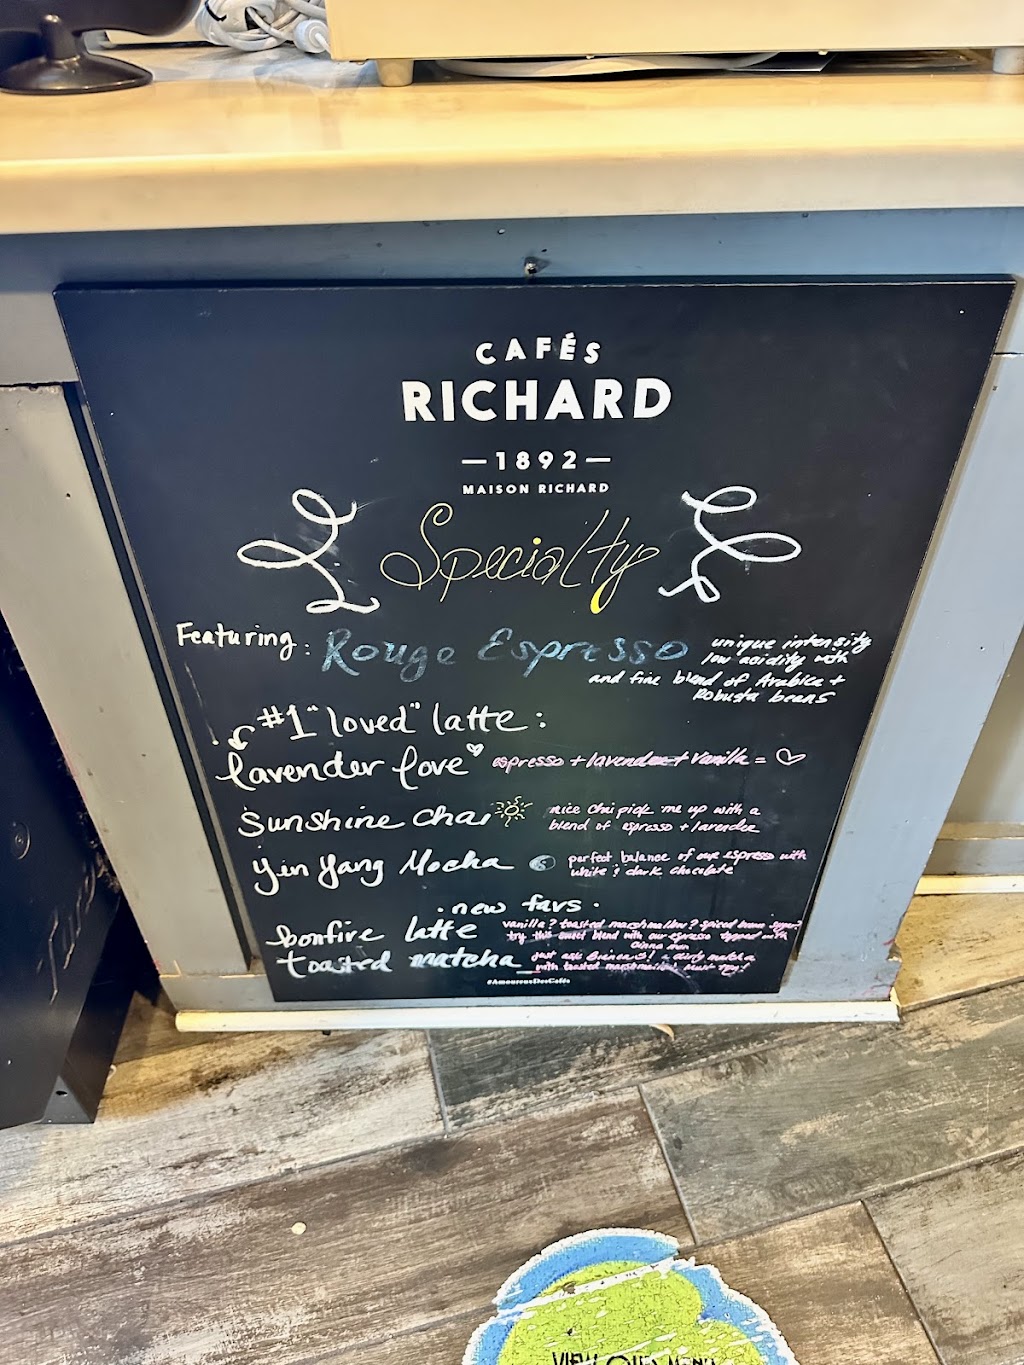 CAFÉS
RICHARD
— 1892 —
MAISON RICHARD
Specialty
Featuring: Rouge Espresso
unique intensity
low acidity with
and fine blend of Arabica +
Robusta beans
#1 "loved" latte:
lavender love espresso + lavender + vanilla = ♡
Sunshine chai nice chai pick me up with a
blend of espresso + lavender
Yin Yang Mocha perfect balance of our espresso with
white & dark chocolate
· new favs ·
bonfire latte vanilla? toasted marshmallow? spiced brown sugar?
try this sweet blend with our espresso topped with
cinnamon
toasted matcha just ask! a dirty matcha
with toasted marshmallow! must try!
#AmoureuxDesCafés
VIEW OUR MENU